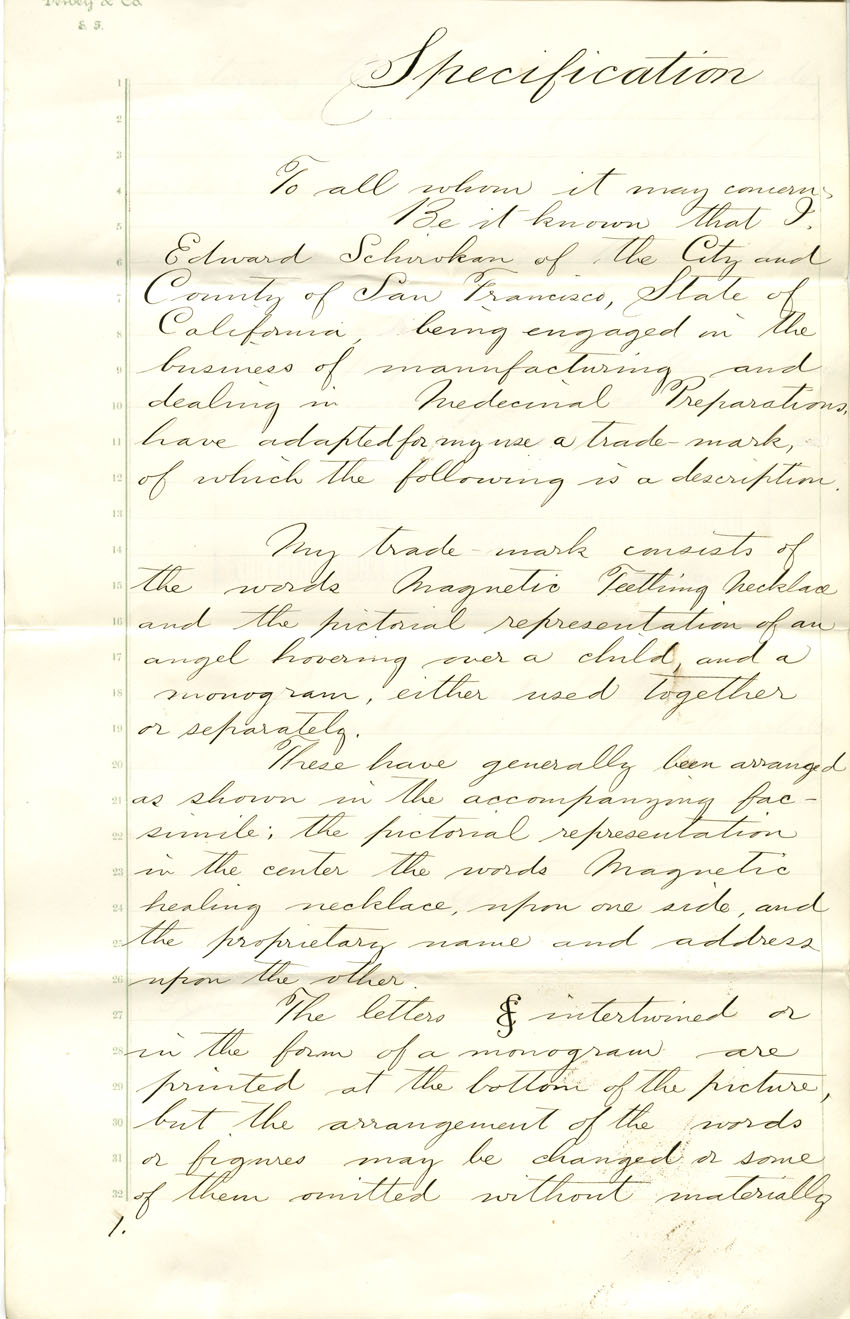 Dewey & Co.
S. F.
Specification
1
2
3
4 To all whom it may concern,
5 Be it known that I.
6 Edward Schirokan of the City and
7 County of San Francisco, State of
8 California, being engaged in the
9 business of manufacturing and
10 dealing in Medecinal Preparations,
11 have adapted for my use a trade-mark,
12 of which the following is a description.
13
14 My trade-mark consists of
15 the words Magnetic Teething Necklace
16 and the pictorial representation of an
17 angel hovering over a child, and a
18 monogram, either used together
19 or separately.
20 These have generally been arranged
21 as shown in the accompanying fac-
22 simile; the pictorial representation
23 in the center the words Magnetic
24 healing necklace, upon one side, and
25 the proprietary name and address
26 upon the other.
27 The letters intertwined or
28 in the form of a monogram are
29 printed at the bottom of the picture,
30 but the arrangement of the words
31 or figures may be changed or some
32 of them omitted without materially
1.